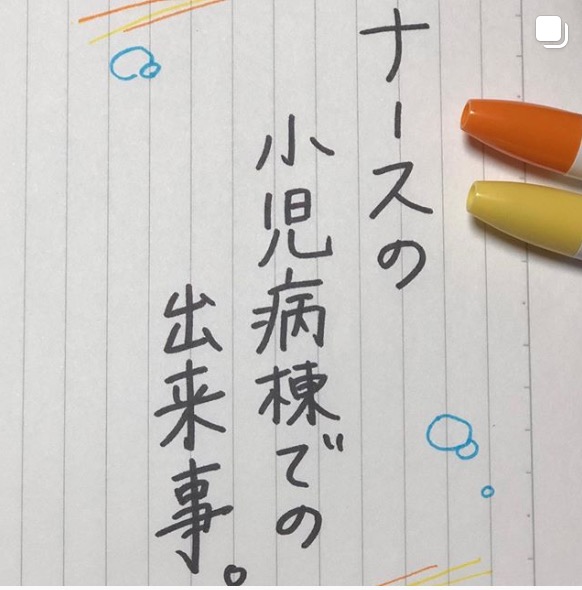 ナースの
小児病棟での
出来事。